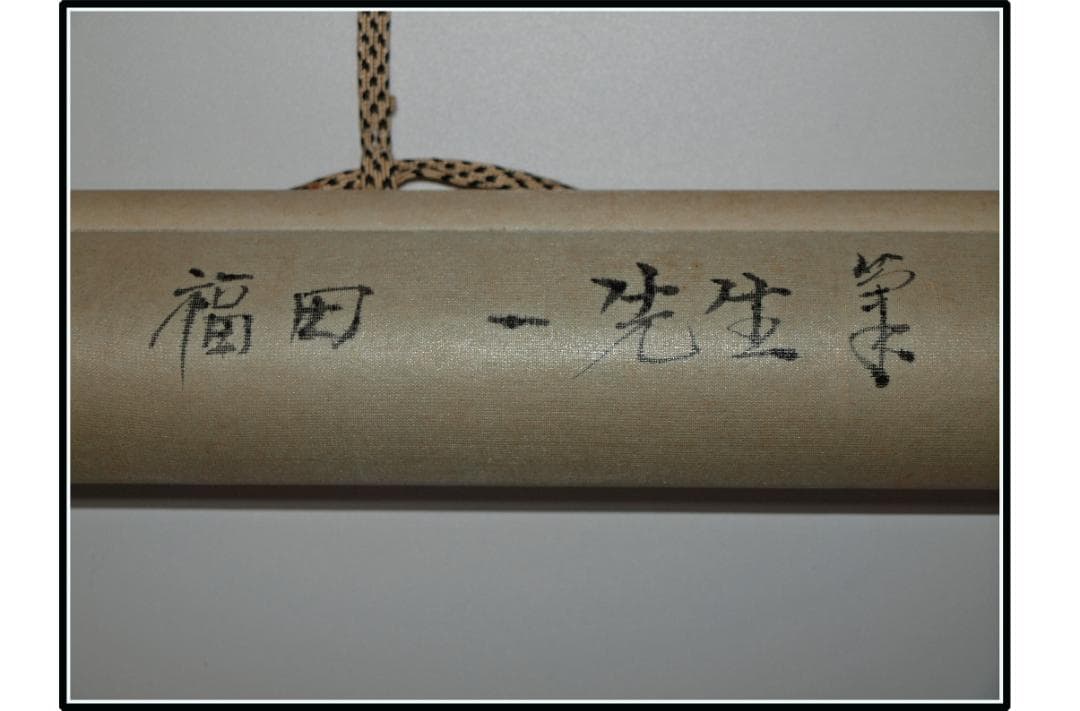 福田一先生筆